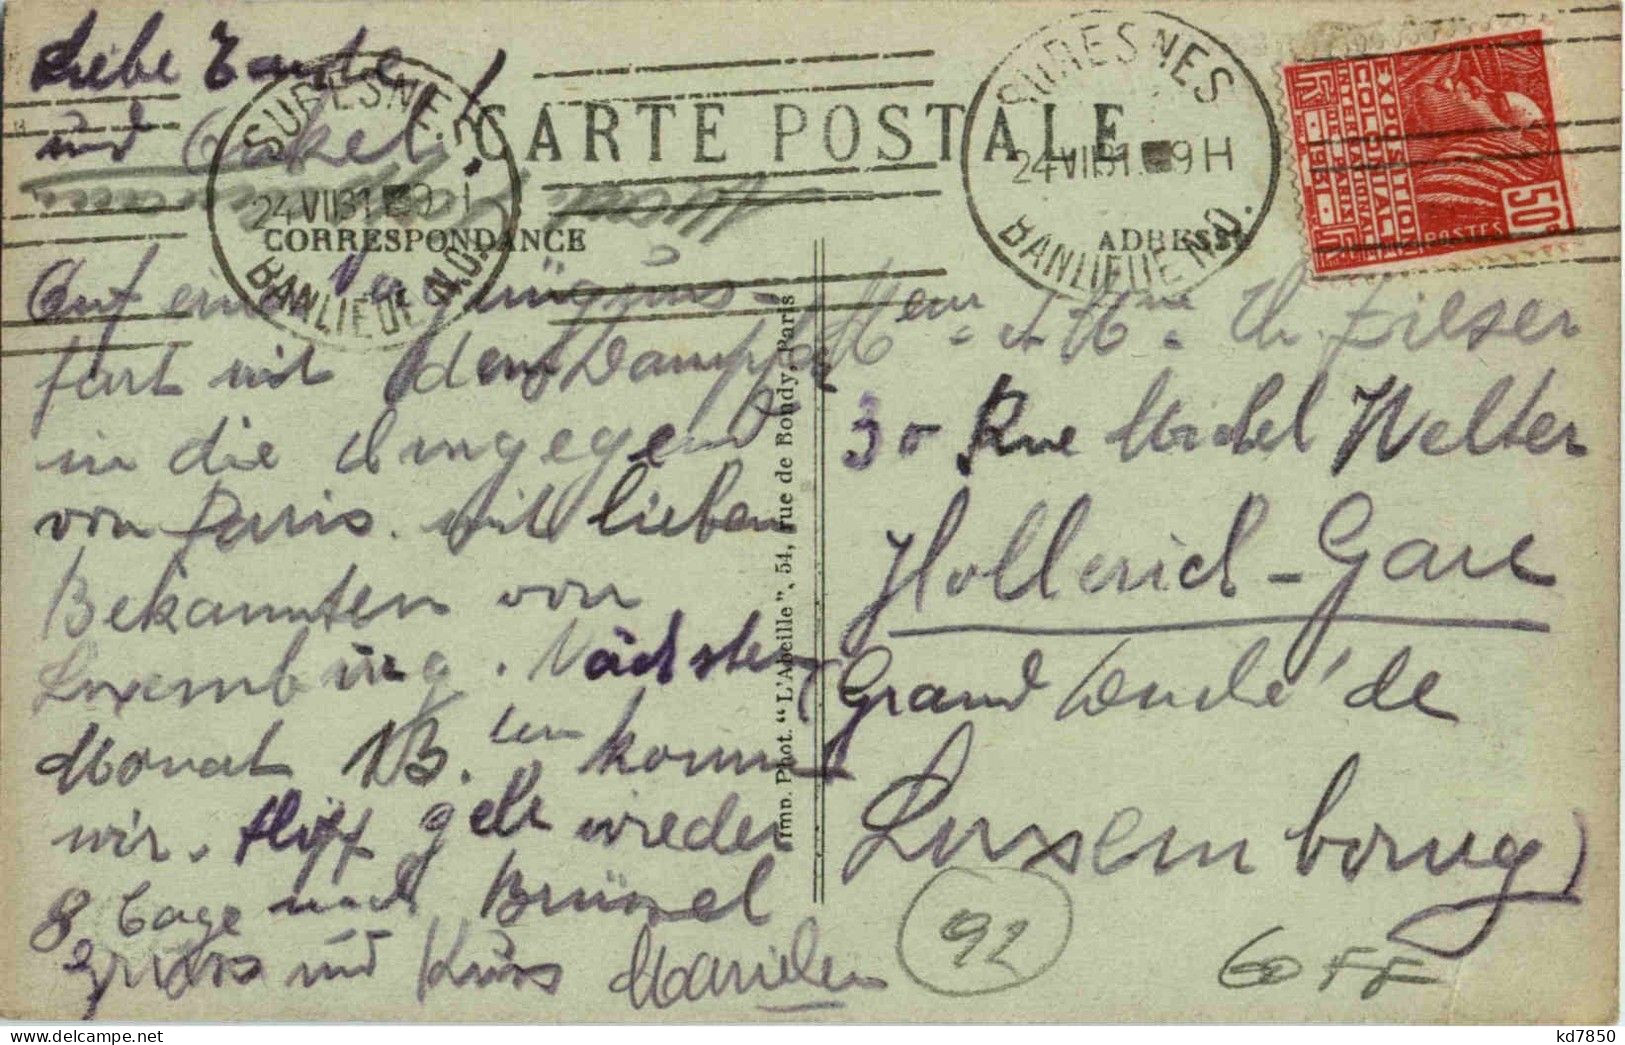 Liebe Tante
und Onkel!
CARTE POSTALE
SURESNES
24 VII 31 9 H
BANLIEUE N.O.
SURESNES
24 VII 31 9 H
BANLIEUE N.O.
EXPOSITION
COLONIALE
INTERNATIONALE
PARIS
1931
50c
POSTES
CORRESPONDANCE
ADRESSE
Auf eine Vergnügüngs-
fart mit dem Dampfer
in die Umgegend
von Paris. mit lieben
Bekannten von
Luxembürg. Nächsten
Monat 13.ten kommt
wir. Hipp geht wieder
8 Tage nach Brüssel
Grüss und Küss Marichen
Imp. Phot. "L'Abeille", 54, rue de Bondy, Paris
Meur - et Mme - Th. Zieser
30 Rue Michel Welter
Hollerich - Gare
(Grand Duché de
Luxembourg)
92
60 FF
kd7850